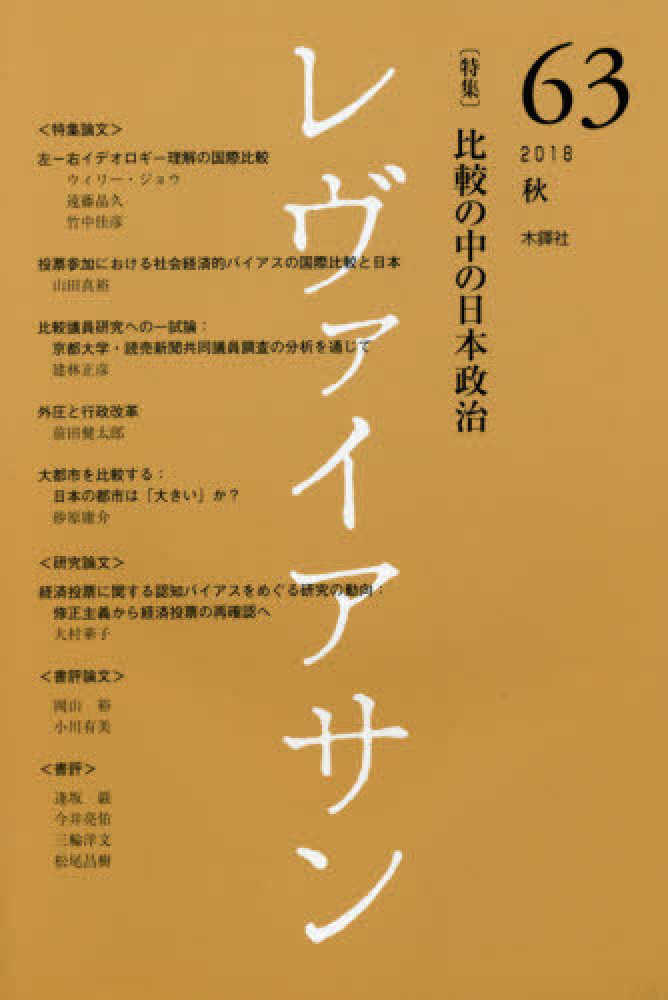 63
2018
秋
木鐸社
〔特集〕 比較の中の日本政治
レヴァイアサン
＜特集論文＞
左－右イデオロギー理解の国際比較
ウィリー・ジョウ
遠藤晶久
竹中佳彦
投票参加における社会経済的バイアスの国際比較と日本
山田真裕
比較議員研究への一試論：
京都大学・読売新聞共同議員調査の分析を通じて
建林正彦
外圧と行政改革
前田健太郎
大都市を比較する：
日本の都市は「大きい」か？
砂原庸介
＜研究論文＞
経済投票に関する認知バイアスをめぐる研究の動向：
修正主義から経済投票の再確認へ
大村華子
＜書評論文＞
岡山　裕
小川有美
＜書評＞
逢坂　巌
今井亮佑
三輪洋文
松尾昌樹